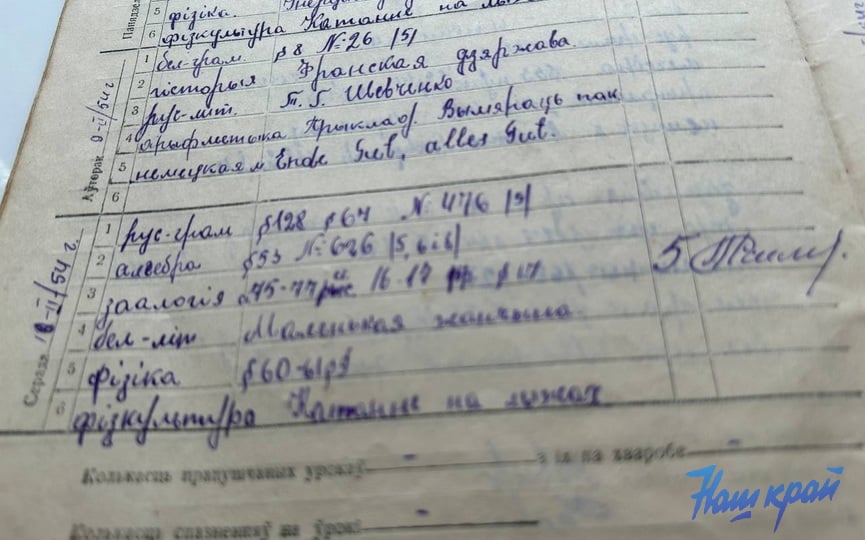 Панядзе
5 фізіка.
6 фізкультура Катание на лы
Аўторак 9-II/54 г
1 бел-грам. §8 №26 |5|
2 гісторыя Франская дзяржава
3 рус-літ. Т. Г. Шевченко
4 арыфметыка Прыклад. Вымяраць пак
5 немецкая м Ende Gut, alles Gut.
6
Серада 10-II/54 г.
1 рус-грам §128 §64 №476 |5|
2 алгебра §53 №626 |5, 6 і в|
3 заалогія §75-77 16-17 §17 5
4 бел-літ Маленькая
5 фізіка §60-61
6 фізкультура Катание на лыжах
Колькасць прапушчаных урокаў - з іх па хваробе -
Колькасць спазненняў на ўрокі -
Наш край